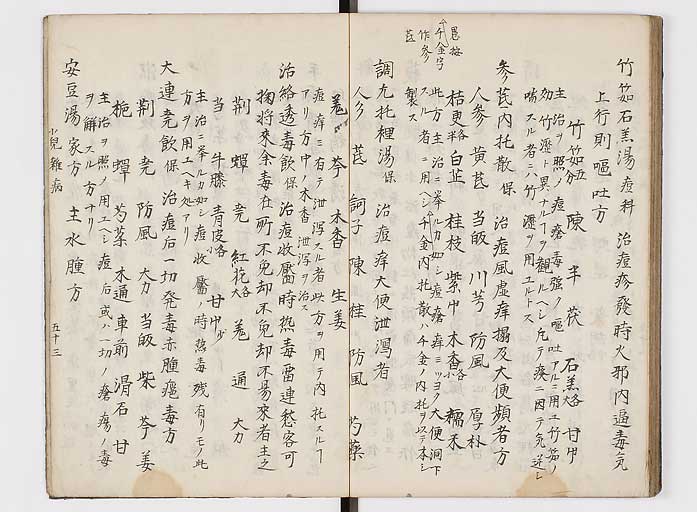 竹茹石羔湯 痘科 治痘疹發時火邪内逼毒気
上行則嘔吐方
竹茹 陳 半 茯 石羔 甘
主治ヲ照ノ痘瘡毒强ノ嘔吐アルニ用ユ竹茹ノ
効竹瀝ト異ナルヿヲ観ルヘシ凡テ痰ニ因テ気逆シ
喘スル者ニハ竹瀝ヲ用ユルトス
参芪内托散 保 治痘風虚痒搨及大便頻者方
人参 黄芪 当皈 川芎 防風 厚朴
桔更 白芷 桂枝 紫 木香 糯米
此方主治ニ挙ルカ如シ痘瘡痒ミツヨク大便洞下
スル者ニ用ユ千金内托散ハ千金ノ内托ヲ以テ本シ
製ス
愚按
千金字
作参
芪
調九托裡湯 保 治痘痒大便泄瀉者
人参 芪 訶子 陳 桂 防風 芍薬
羗 苓 木香 生姜
痘痒ミ有テ泄瀉スル者此方ヲ用テ内托スルヿ
アリ方中ノ木香泄瀉ヲ治ス
治絡透毒飲 保 治痘收靨時熱毒雷連愁客可
掬将來余毒在所不免却不免却不易來者主之
荆 蟬 羗 紅花 羗 通 大力
当 牛膝 青皮 甘
主治ニ挙ルカ如シ痘收靨ノ時熱毒残有リモノ此
方ヲ用ユヘキ処アリ
大連羗飲 保 治痘后一切発毒赤腫瘟毒方
荆 羗 防風 大力 当皈 柴 芩 姜
梔 蟬 芍薬 木通 車前 滑石 甘
主治ヲ照ノ用ユヘシ痘后或ハ一切ノ瘡瘍ノ毒
ヲ解スル方ナリ
安豆湯 家方 主水腫方
小兒雑病
五十三